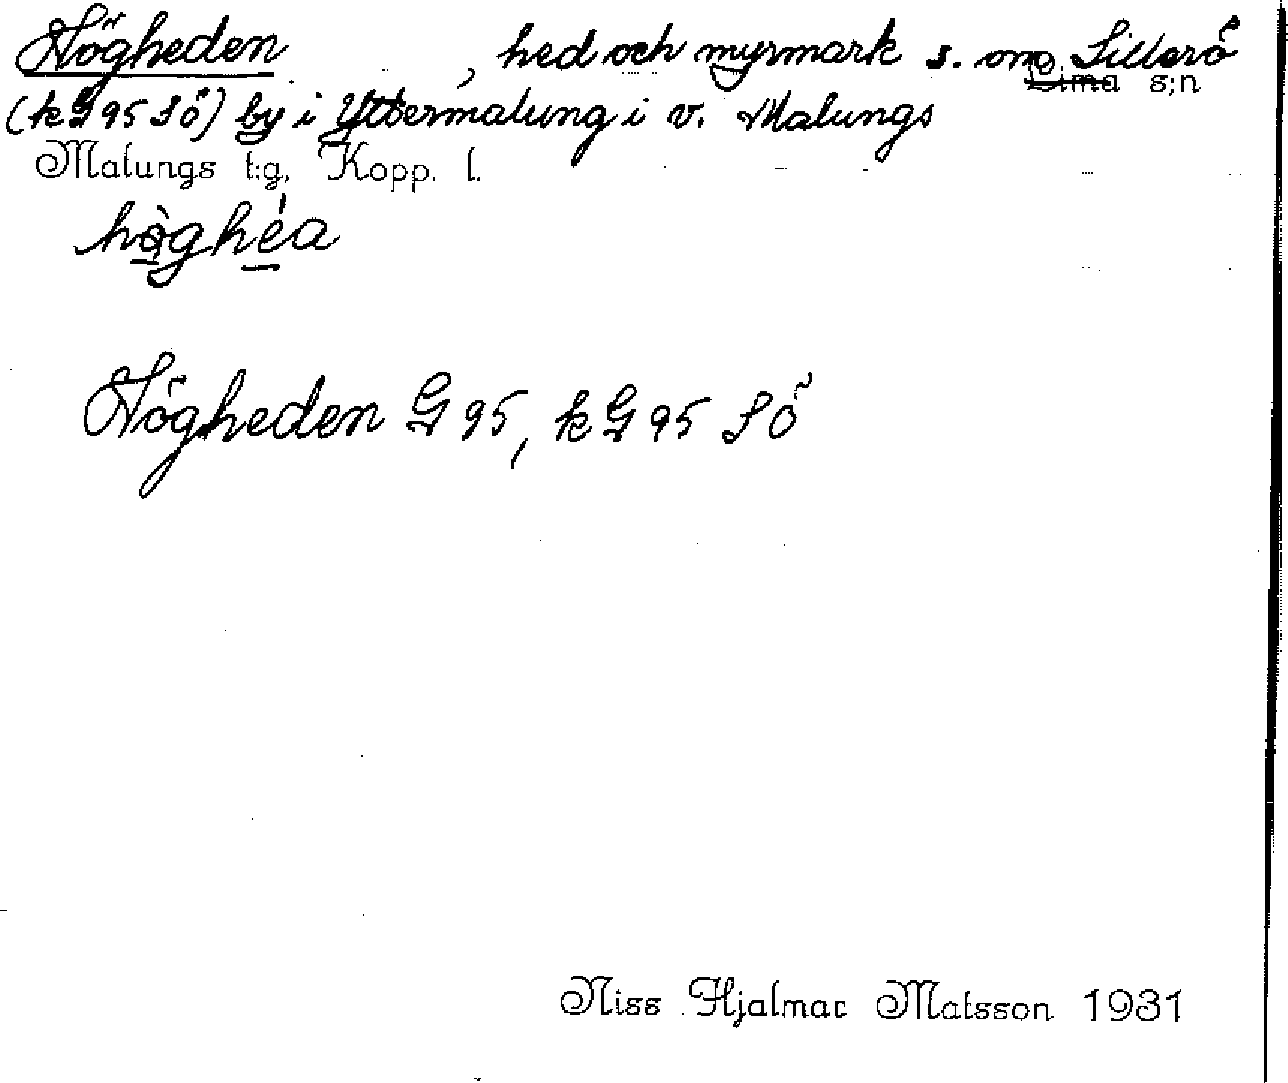 Högheden, hed och myrmark s. om Sillerö
Lima s:n
(k G 95 SÖ) by i Yttermalung i v. Malungs
Malungs t:g, Kopp. l.
hòghéa
Högheden G 95, k G 95 SÖ
Niss Hjalmar Matsson 1931